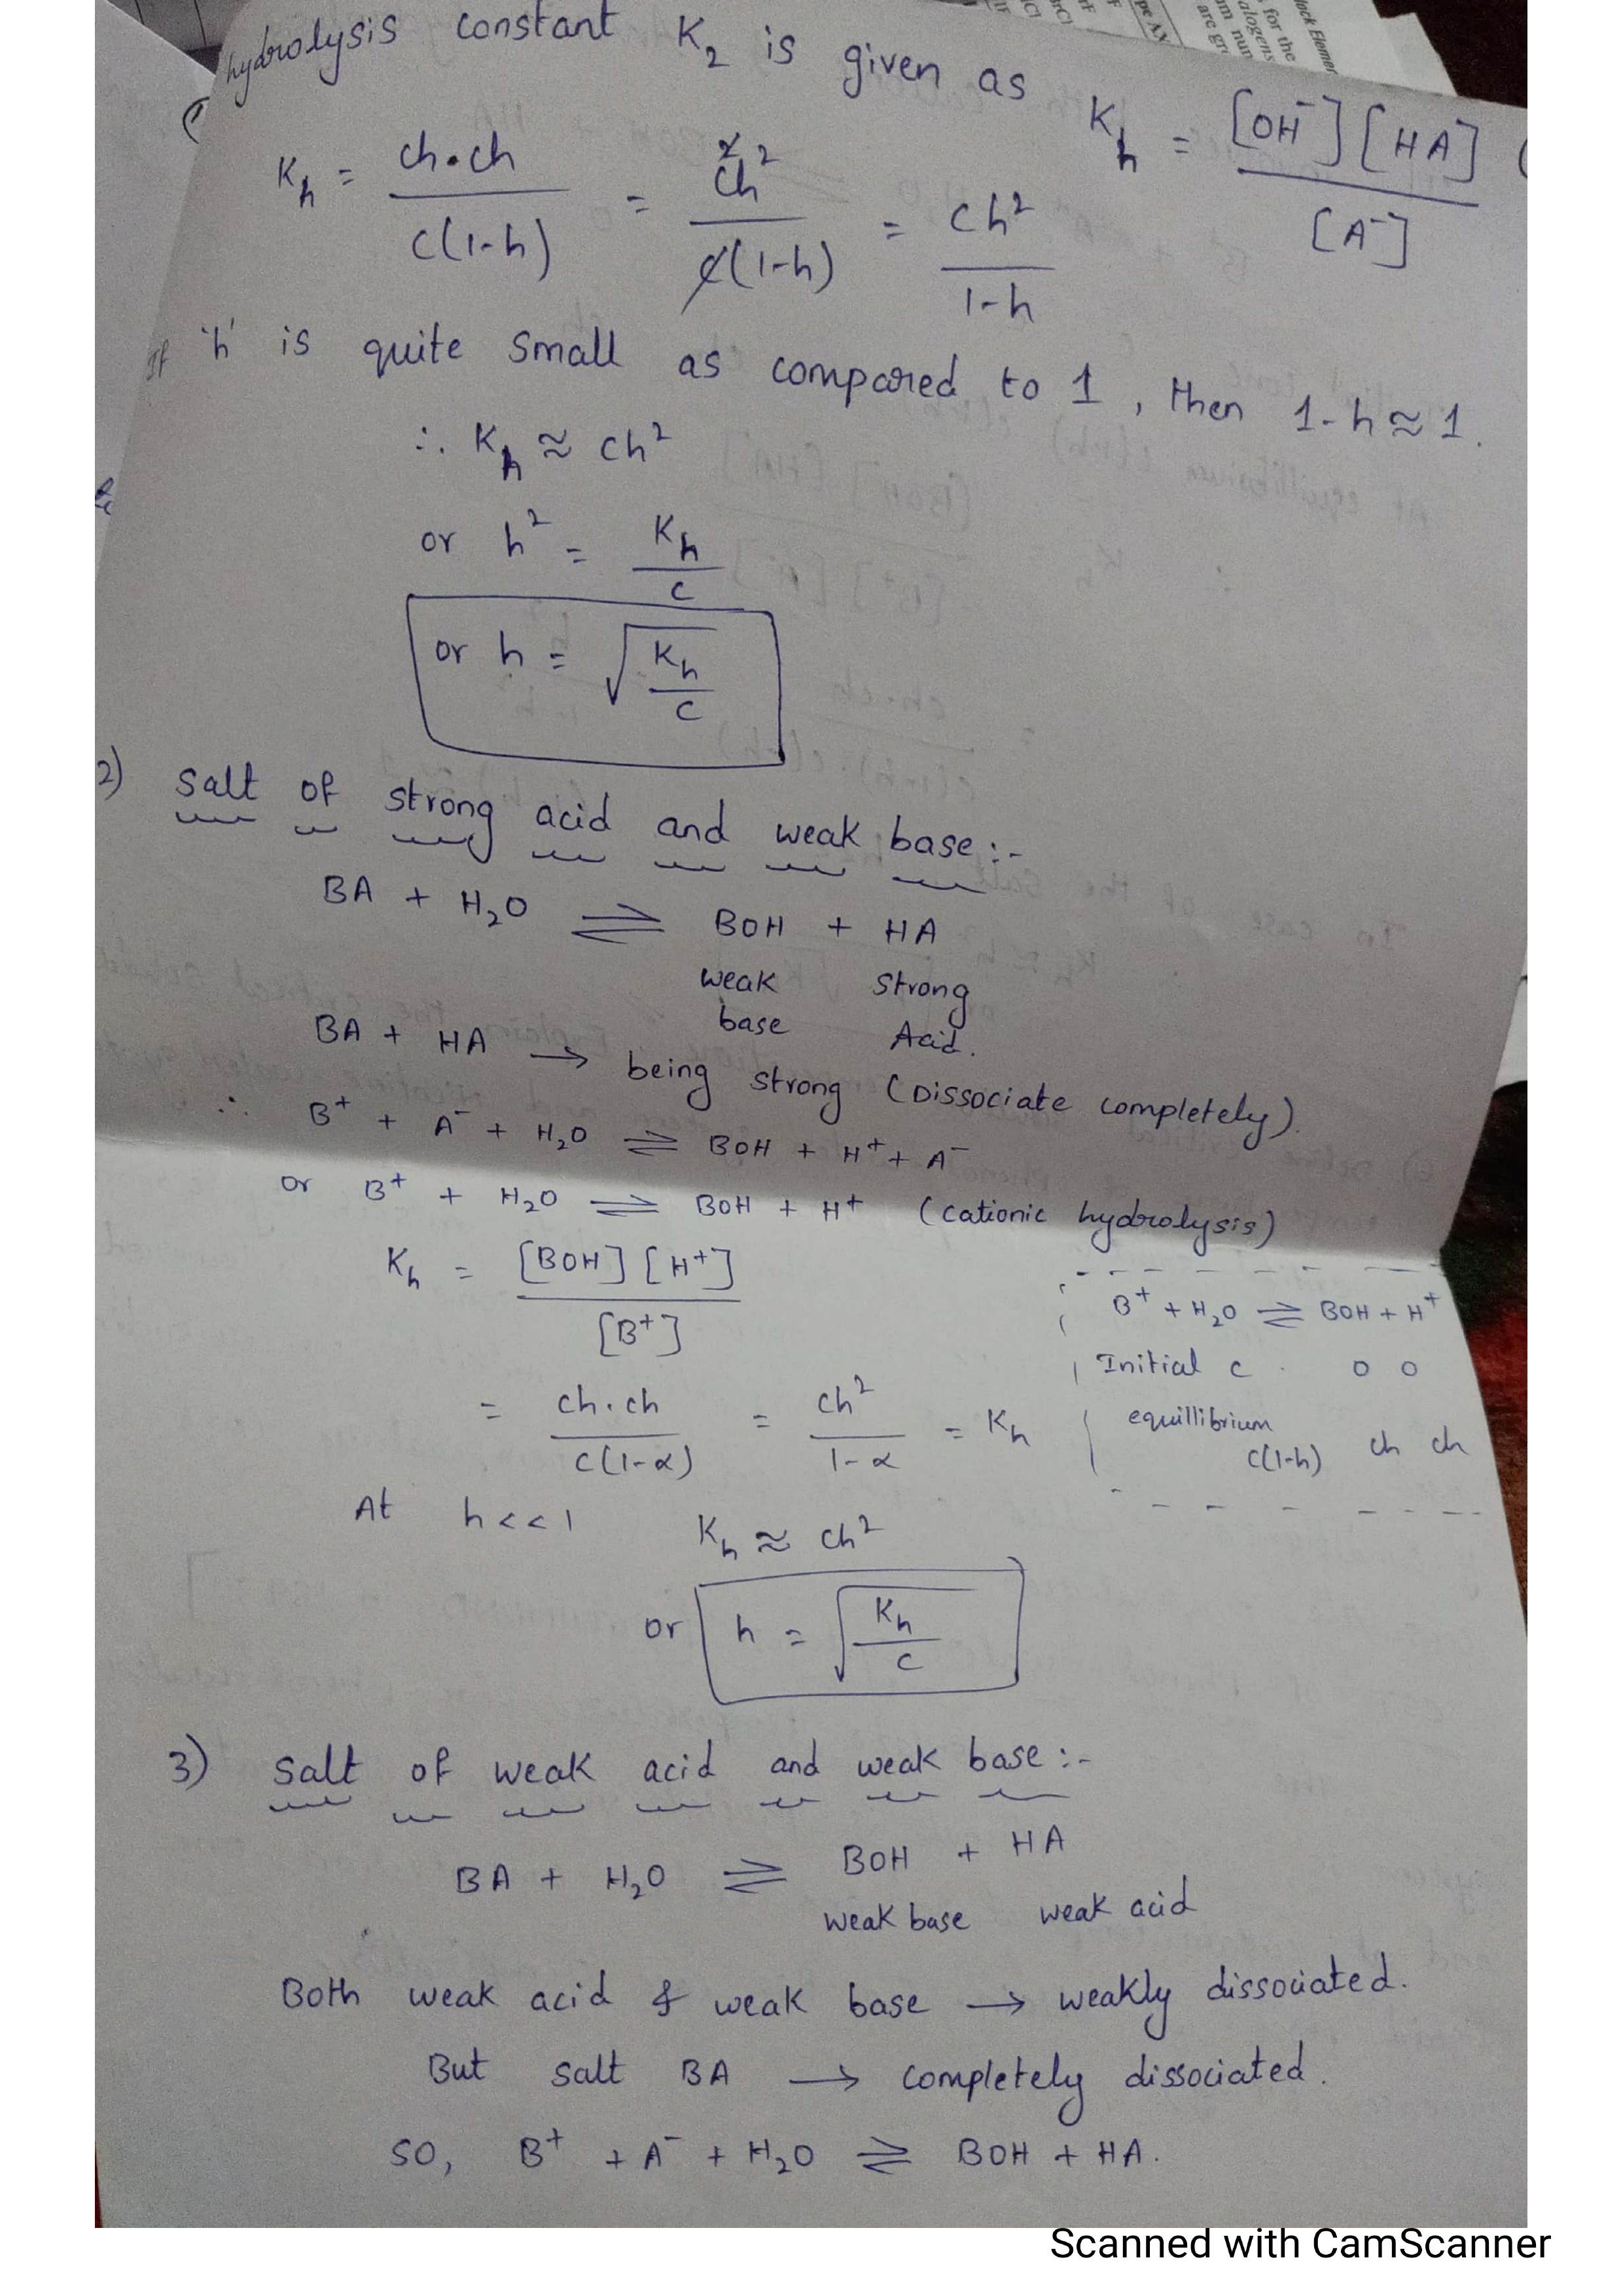 hydrolysis constant K₂ is given as Kh = [OH⁻][HA] / [A⁻]
Kh = ch·ch / c(1-h) = c²h² / c(1-h) = ch² / 1-h
If 'h' is quite small as compared to 1, then 1-h ≈ 1.
∴ Kh ≈ ch²
or h² = Kh / c
or h = √(Kh / c)
2) Salt of strong acid and weak base :-
BA + H₂O ⇌ BOH + HA
weak base Strong Acid.
BA + HA → being strong (Dissociate completely).
∴ B⁺ + A⁻ + H₂O ⇌ BOH + H⁺ + A⁻
or B⁺ + H₂O ⇌ BOH + H⁺ (cationic hydrolysis)
Kh = [BOH][H⁺] / [B⁺]
B⁺ + H₂O ⇌ BOH + H⁺
Initial c 0 0
equillibrium c(1-h) ch ch
= ch·ch / c(1-α) = ch² / 1-α = Kh
At h << 1 Kh ≈ ch²
or h = √(Kh / c)
3) Salt of weak acid and weak base :-
BA + H₂O ⇌ BOH + HA
weak base weak acid
Both weak acid & weak base → weakly dissociated.
But salt BA → completely dissociated.
SO, B⁺ + A⁻ + H₂O ⇌ BOH + HA.
Scanned with CamScanner